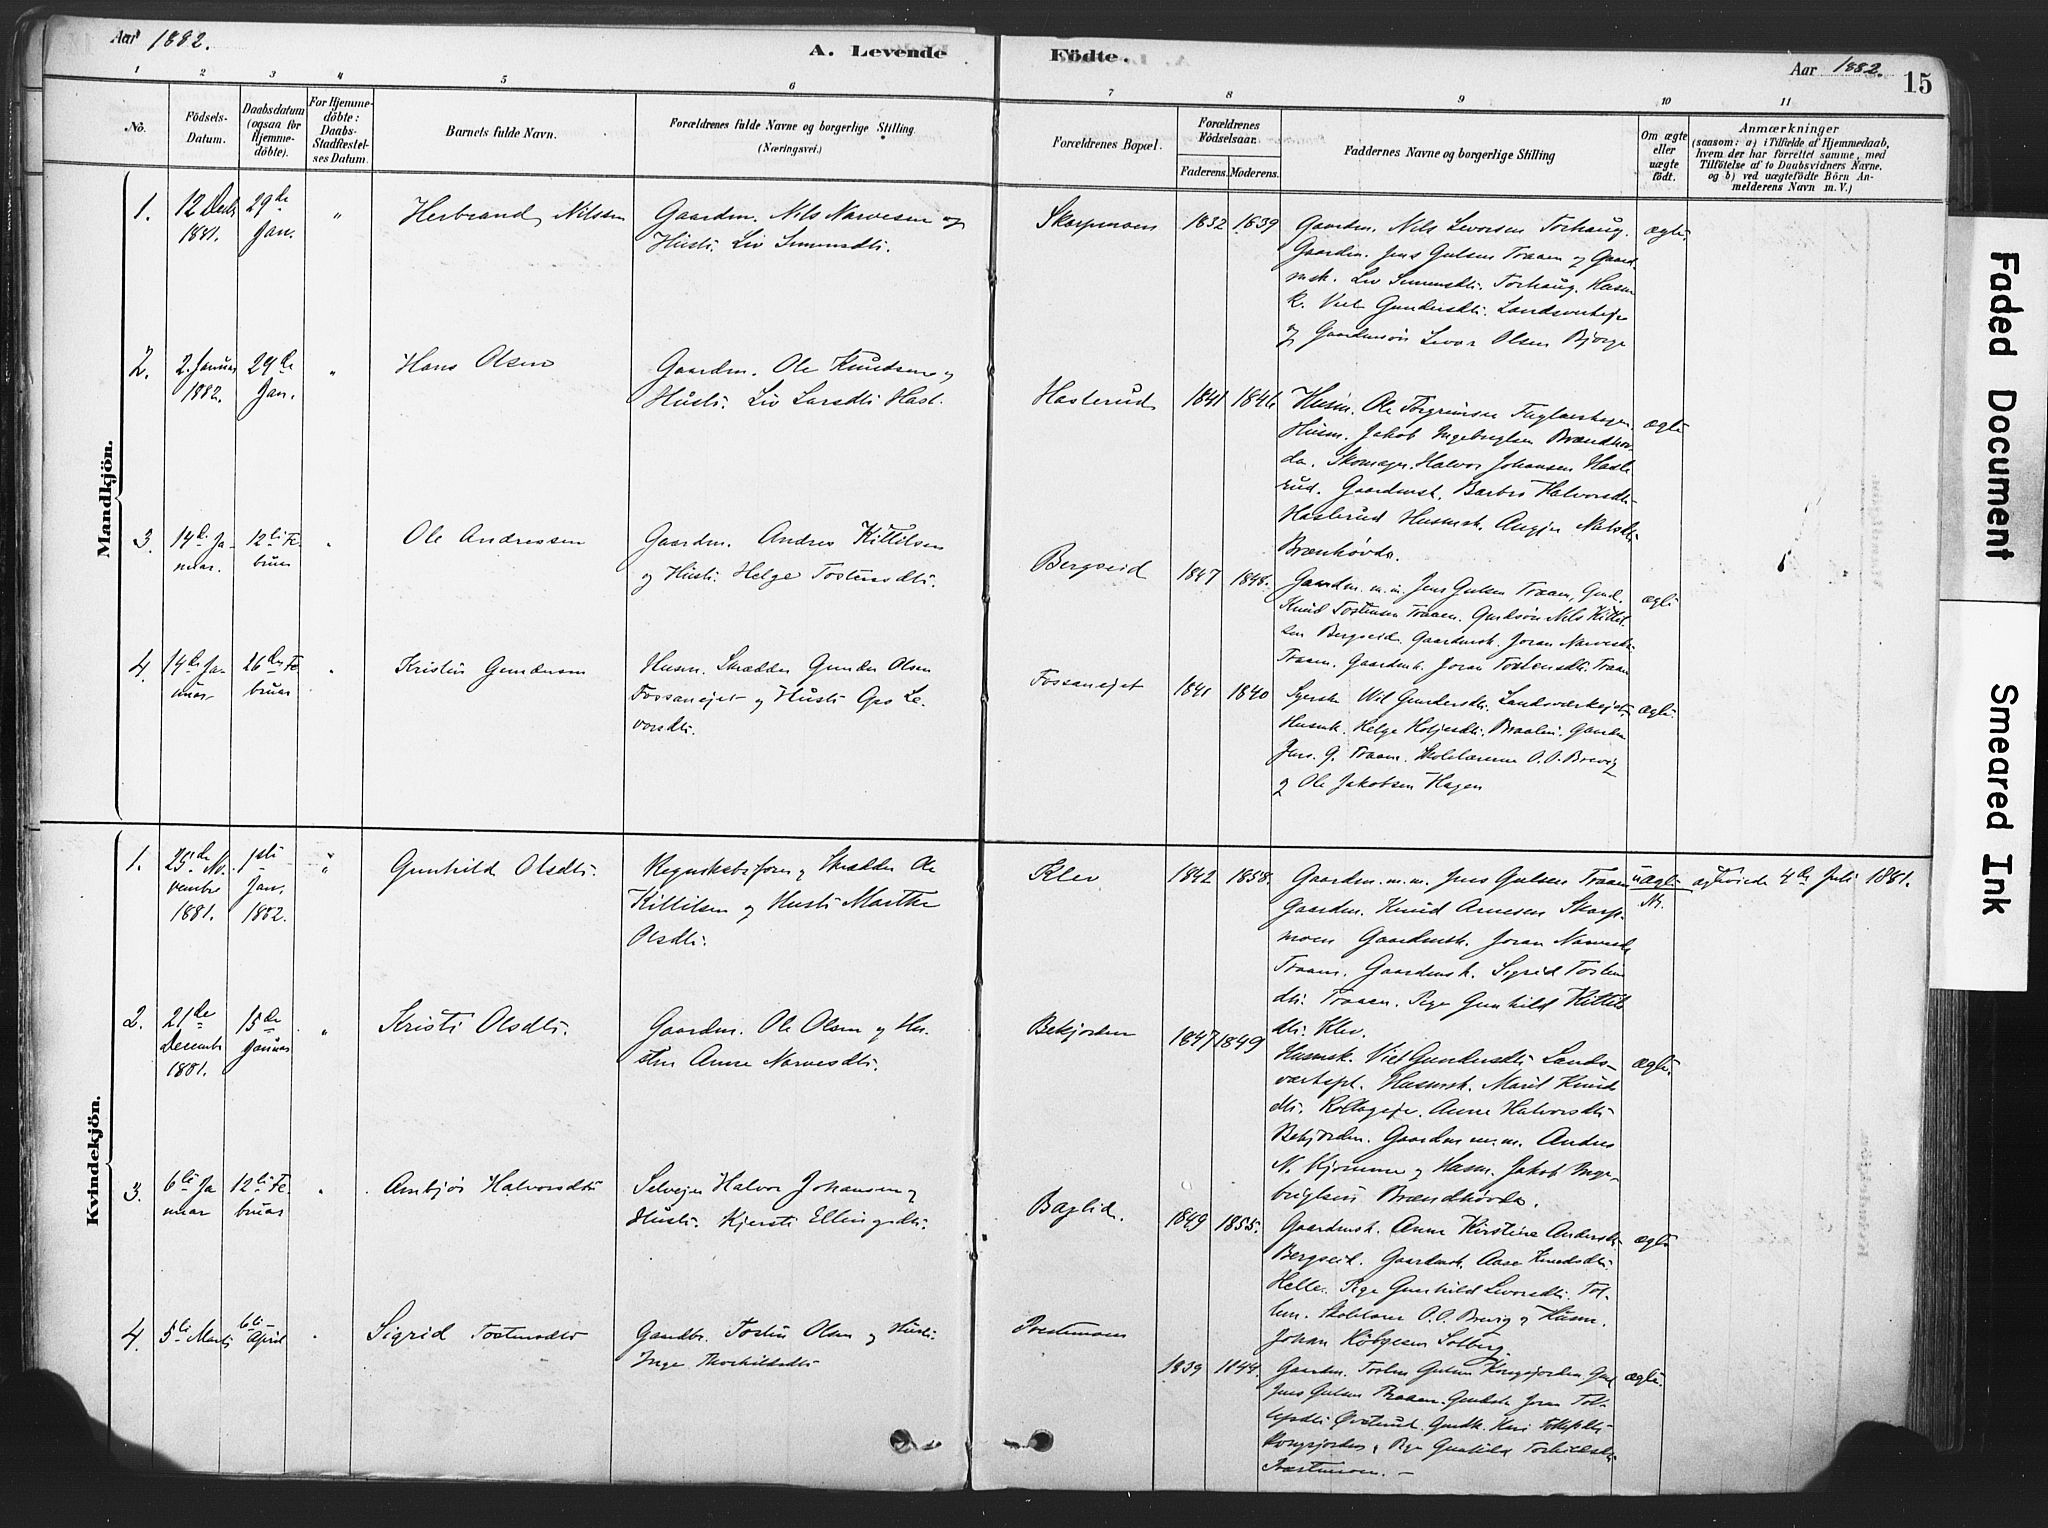 Aar 1882.
A. Levende Födte.
Aar 1882.
15
1 2 3 4 5 6 7 8 9 10 11
No.
Födsels-
Datum.
Daabsdatum
(ogsaa for
Hjemme-
döbte).
For Hjemme-
döbte:
Daabs-
Stadfæstel-
ses Datum.
Barnets fulde Navn.
Forældrenes fulde Navne og borgerlige Stilling
(Næringsvei.)
Forældrenes Bopæl.
Forældrenes
Födselsaar.
Faderens. Moderens.
Faddernes Navne og borgerlige Stilling
Om ægte
eller
uægte
födt.
Anmærkninger
(saasom: a) i Tilfælde af Hjemmedaab,
hvem der har forrettet samme, med
Tilföielse af to Daabsvidners Navne.
og b) ved uægtefödte Börn An-
melderens Navn m. V.)
Mandkjön.
1.
12 Decbr
1881.
29de
Jan.
"
Herbrand Nilssen
Gaardm. Nils Narvesen og
Hustr. Liv Simensdtr.
Skarpmoen
1832 1839
Gaardm. Nils Levorsen Torhaug.
Gaardm. Jens Gulsen Traaen og Gaard-
msk. Liv Simensdtr. Torhaug. Husm
k. Gundersdtr.
og Gaardmsön Levor Olsen Bjørge
ægte.
2.
2. Januar
1882.
29de
Jan.
"
Hans Olsen
Gaardm. Ole Knudsen og
Hustr. Liv Larsdtr.
Hasterud
1841 1846
Husm. Ole Torgrimsen
Husm. Jakob Ingebrigtsen Brændhov-
da. Skomager. Halvor Johansen Hasle
rud. Gaardmsk. Barbro Halvorsdtr.
Haslerud Husmsk.
Brænhøvda.
ægte
3.
14de Ja-
nuar.
12te Fe-
bruar
"
Ole Andressen
Gaardm. Andres Kittilsen
og Hustr. Helge Tostensdtr.
Bergseid
1847 1848.
Gaardm. m.m. Jens Gulsen Traaen, Gmd.
Knud Tostensen Traaen. Gmdsön Nils Kittil-
sen Bergseid. Gaardmsk. Joran Narvesdtr.
Traaen. Gaardmsk. Joran Tostensdtr. Traaen
ægte
4.
14de Jan
nuar
26de Fe-
bruar
"
Kristen Gundersen
Husm. Skrædder Gunder Olsen
Fossaneiet og Hustr. Gro Le-
vorsdtr.
Fossaneiet
1841 1840
Gundersdtr. Landsværkeiet.
Husmk. Helge Braalin. Gaardm
Jens G. Traaen. Skolelærerne O.O. Brevig
og Ole Jakobsen Hagen
ægte.
Kvindekjön.
1.
25de No-
vembre
1881.
1ste
Jan.
1882.
"
Gunhild Olsdtr.
Regnskabsförer og Skrædder Ole
Kittilsen og Hustr. Marthe
Olsdtr.
Klev
1842 1858.
Gaardm. m.m. Jens Gulsen Traaen
Gaardm. Knud Arnesen Skarp-
moen Gaardmsk. Joran Narvesdtr
Traaen. Gaardmsk. Sigrid Tosten
dtr. Traaen. Pige Gunhild Kittils
dtr. Klev.
uægte
viede 4de Juli 1881.
2.
21de
Decembr
1881.
15de
Januar
"
Kristi Olsdtr.
Gaardm. Ole Olsen og Hu-
stru Anne Narvesdtr.
Bekjorden
1847 1849
Husmsk. Gundersdtr. Lands-
værkeiet. Husmsk. Marit Knuds
dtr. Anne Halvorsdtr.
Bekjorden. Gaardm m.m. Andres
N. Kjomme og Husm. Jakob Inge-
brigtsen Brændhøvda.
ægte.
3.
6te Ja-
nuar
12te Fe-
bruar
"
Ambjör Halvorsdtr
Selveier Halvor Johansen og
Hustr. Kjersti Ellingsdtr.
Baglid.
1849 1855.
Gaardmsk. Anne Kirstine Andersdtr.
Bergseid. Gaardmsk. Aase Knudsdtr.
Helle. Pige Gunhild Levorsdtr.
Skolelærer O.O. Brevig og Husm.
Johan Solberg.
ægte
4.
5te Marts
6te
April
"
Sigrid Tostensdtr
Gaardbr. Tosten Olsen og Hustr.
Inge Thorkildsdtr.
Præstemoen
1839 1844.
Gaardm. Tosten Gulsen Kongsjorden. Gmd
Jens Gulsen Traaen. Gmdsk. Joran Tol-
lefsdtr. Øvsterud. Gmdk. Kari Tollefsdtr.
Kongsjorden, Pige Gunhild Torkildsdtr.
Præstemoen. —
ægte.
Faded Document
Smeared Ink